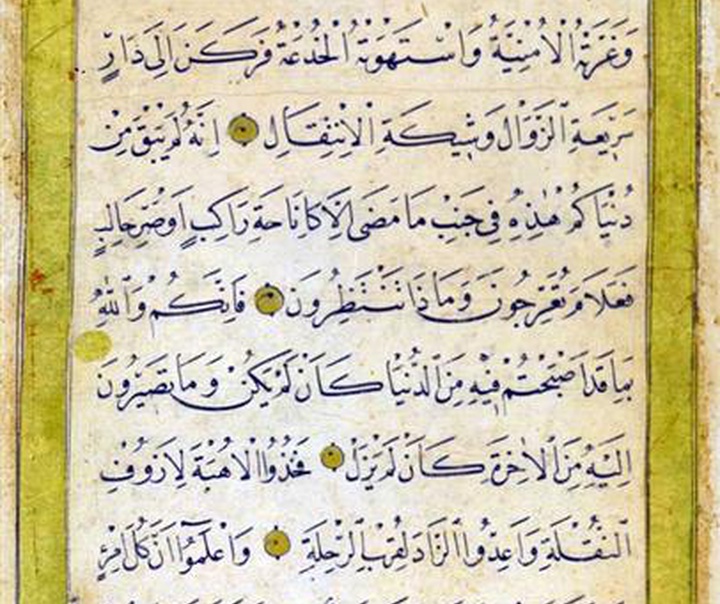 وَغَرَّتْهُ الْاُمْنِيَّةُ وَاسْتَهْوَتْهُ الْخُدْعَةُ فَرَكَنَ اِلٰى دَارٍ
سَرٖيعَةِ الزَّوَالِ وَشٖيكَةِ الْاِنْتِقَالِ اِنَّهُ لَمْ يَبْقَ مِنْ
دُنْيَاكُمْ هٰذِهٖ فٖى جَنْبِ مَا مَضٰى اِلَّا كَاِنَاخَةِ رَاكِبٍ اَوْ صَرِّ حَالِبٍ
فَعَلَامَ تُعَرِّجُونَ وَمَاذَا تَنْتَظِرُونَ فَاِنَّكُمْ وَاللّٰهِ
بِمَا قَدْ اَصْبَحْتُمْ فٖيهِ مِنَ الدُّنْيَا كَاَنْ لَمْ يَكُنْ وَمَا تَصٖيرُونَ
اِلَيْهِ مِنَ الْاٰخِرَةِ كَاَنْ لَمْ يَزَلْ فَخُذُوا الْاُهْبَةَ لِاُزُوفِ
النُّقْلَةِ وَاَعِدُّوا الزَّادَ لِقُرْبِ الرِّحْلَةِ وَاعْلَمُوٓا اَنَّ كُلَّ امْرِئٍ